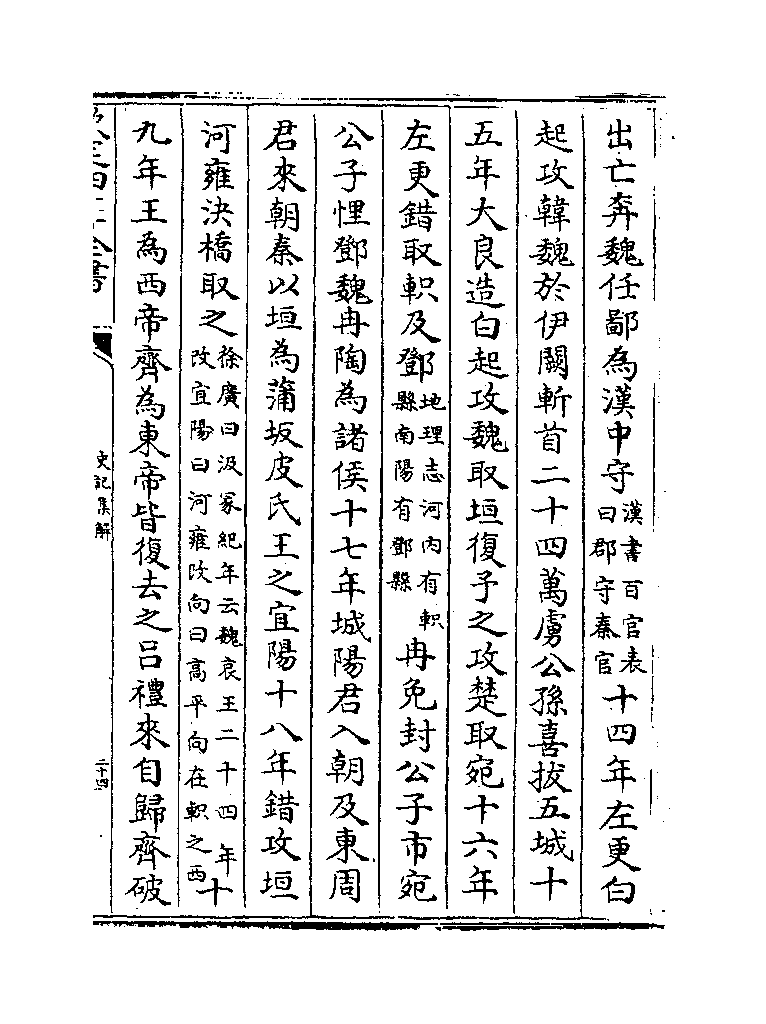 出亡奔魏任鄙為漢中守漢書百官表曰郡守秦官十四年左更白
起攻韓魏於伊闕斬首二十四萬虜公孫喜拔五城十
五年大良造白起攻魏取垣復予之攻楚取宛十六年
左更錯取軹及鄧地理志河內有軹縣南陽有鄧縣冉免封公子市宛
公子悝鄧魏冉陶為諸侯十七年城陽君入朝及東周
君來朝秦以垣為蒲坂皮氏王之宜陽十八年錯攻垣
河雍決橋取之徐廣曰汲冢紀年云魏哀王二十四年改宜陽曰河雍改向曰高平向在軹之西十
九年王為西帝齊為東帝皆復去之呂禮來自歸齊破
欽定四庫全書
史記集解
二十四